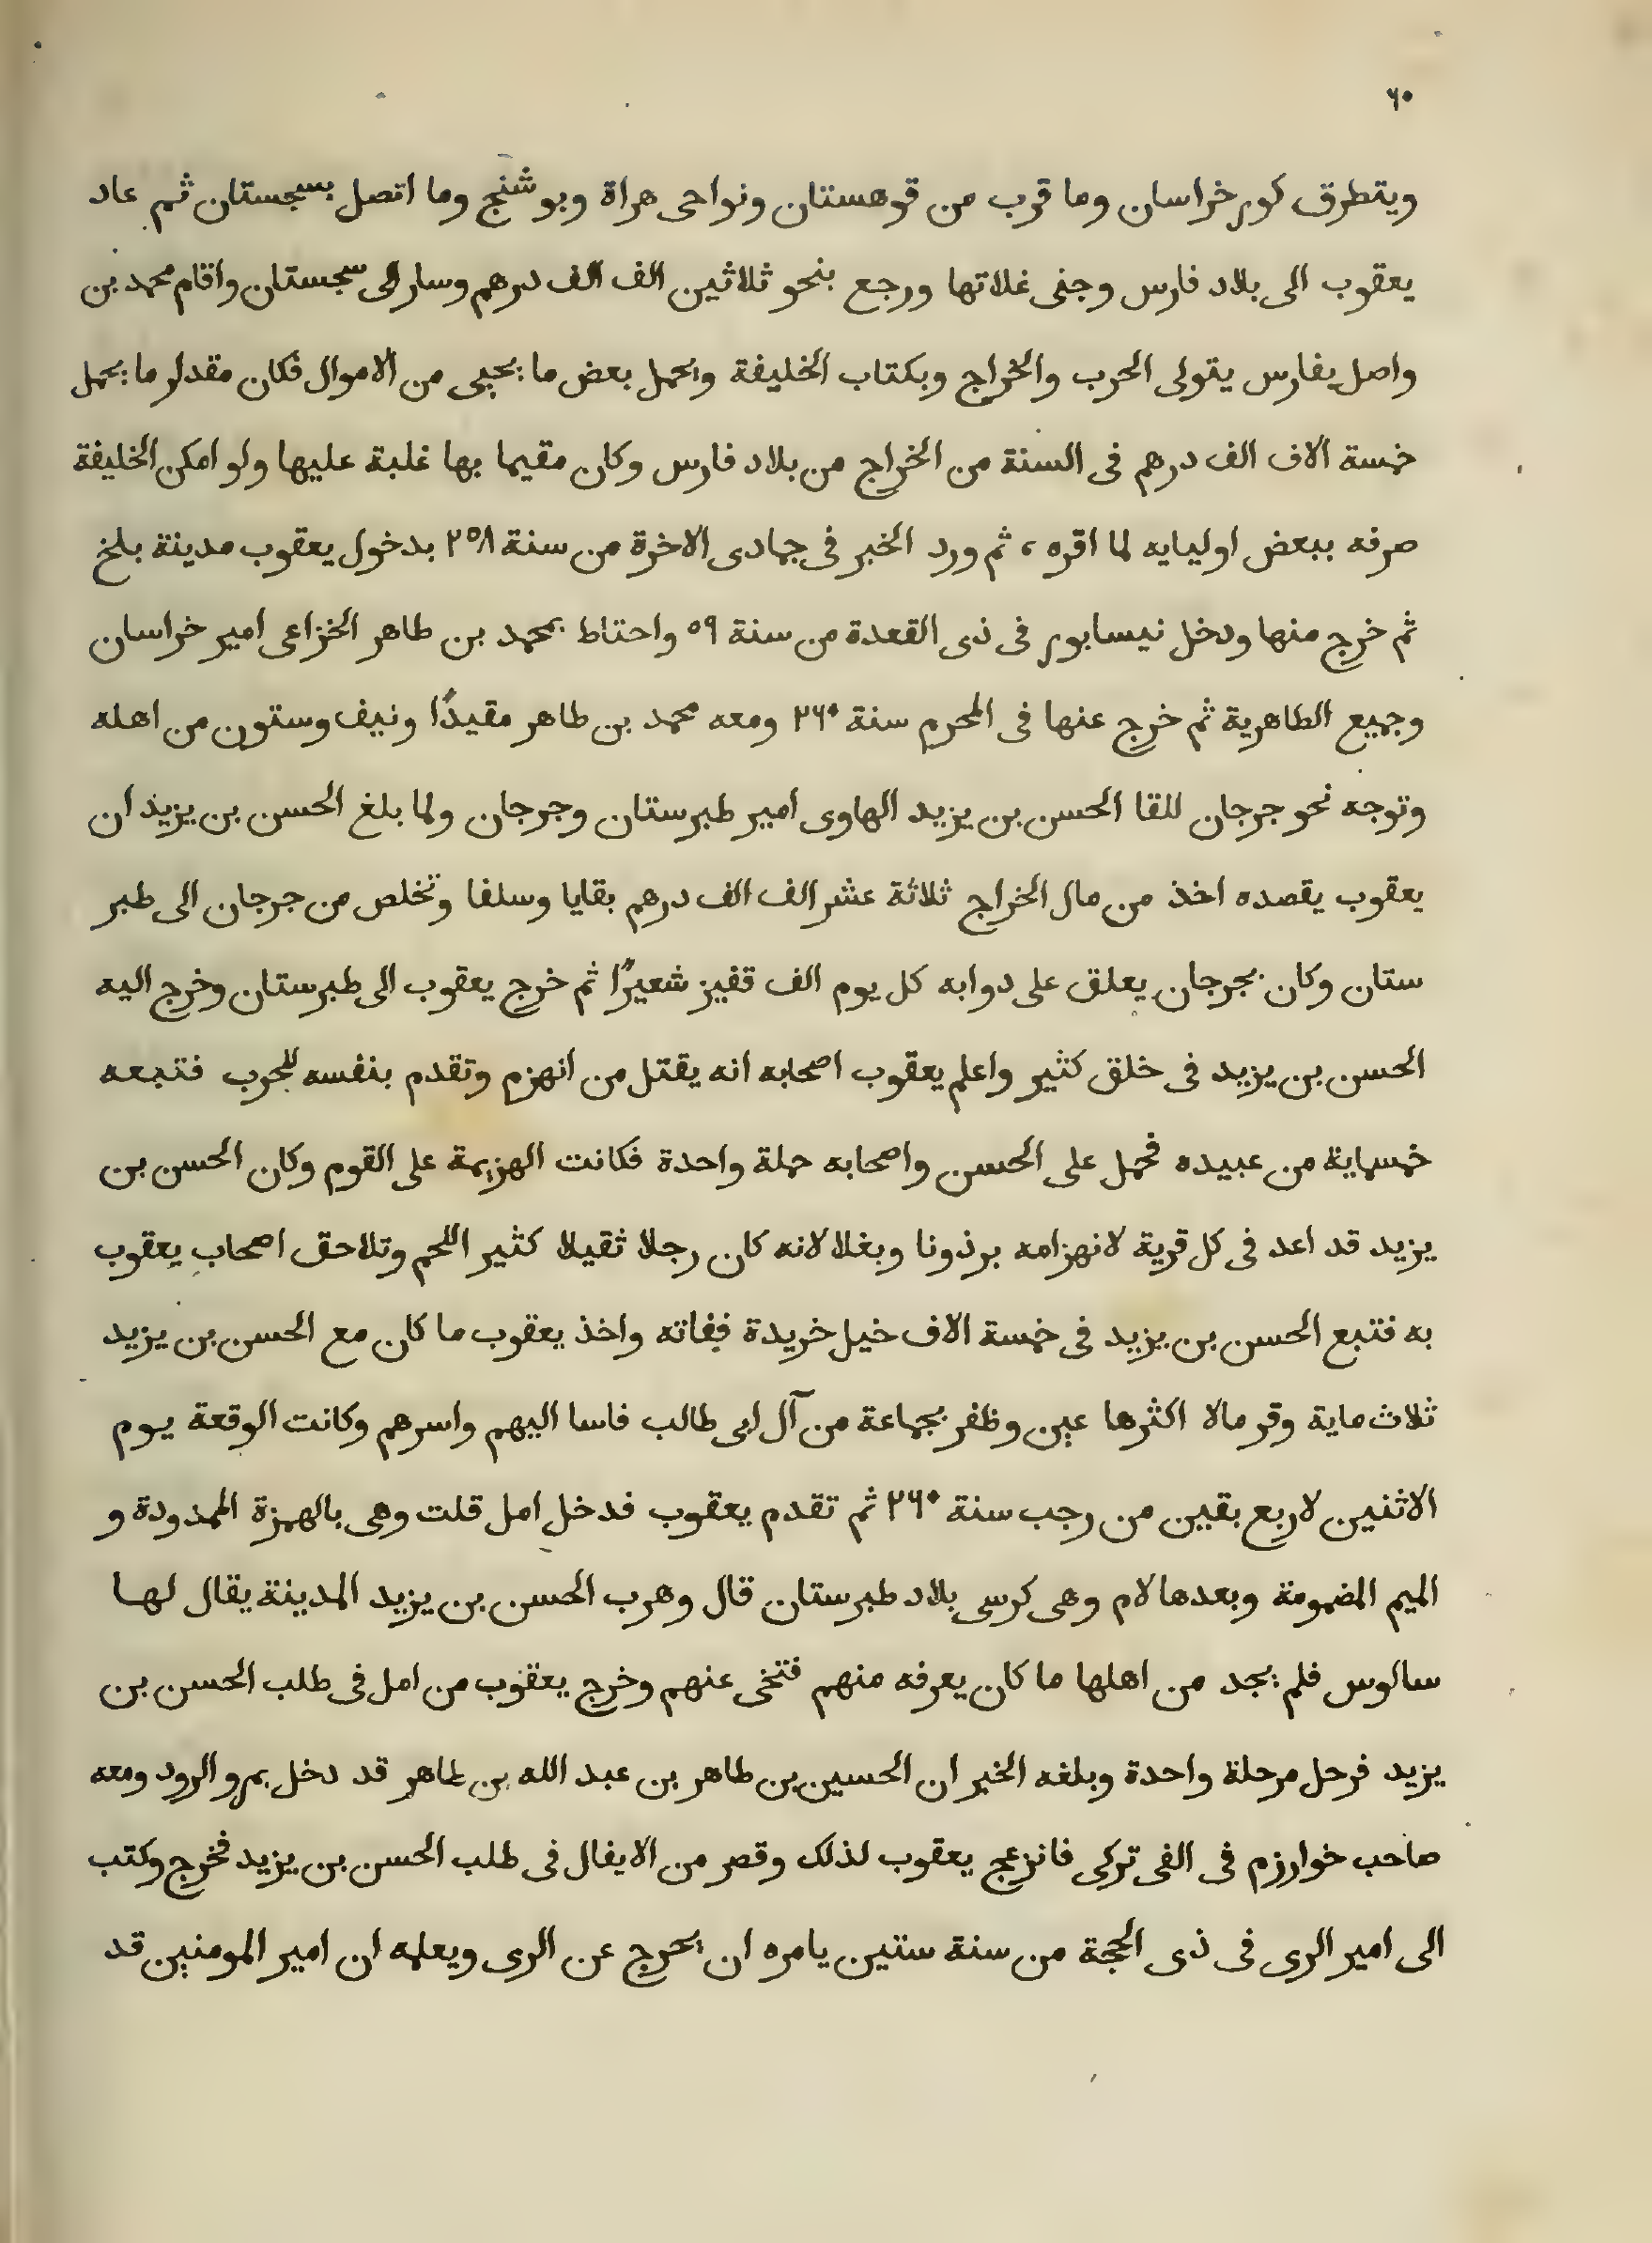 ٦٠
ويتطرق كور خراسان وما قرب من قوهستان ونواحى هراة وبوشنج وما اتصل بسجستان ثم عاد
يعقوب الى بلاد فارس وجنى غلاتها ورجع بنحو ثلاثين الف الف درهم وسار الى سجستان واقام محمد بن
واصل بفارس يتولى الحرب والخراج وبكتاب الخليفة ويحمل بعض ما يجبى من الاموال فكان مقدار ما يحمل
خمسة الاف الف درهم فى السنة من الخراج من بلاد فارس وكان مقيما بها غلبة عليها ولو امكن الخليفة
صرفه ببعض اوليايه لما اقره ، ثم ورد الخبر فى جمادى الاخرة من سنة ٢٥٨ بدخول يعقوب مدينة بلخ
ثم خرج منها ودخل نيسابور فى ذى القعدة من سنة ٥٩ واحتاط بمحمد بن طاهر الخزاعى امير خراسان
وجميع الطاهرية ثم خرج عنها فى المحرم سنة ٢٦٠ ومعه محمد بن طاهر مقيدًا ونيف وستون من اهله
وتوجه نحو جرجان للقا الحسن بن يزيد الهاوى امير طبرستان وجرجان ولما بلغ الحسن بن يزيد ان
يعقوب يقصده اخذ من مال الخراج ثلاثة عشر الف الف درهم بقايا وسلفا وتخلص من جرجان الى طبر
ستان وكان بجرجان يعلق على دوابه كل يوم الف قفيز شعيرًا ثم خرج يعقوب الى طبرستان وخرج اليه
الحسن بن يزيد فى خلق كثير واعلم يعقوب اصحابه انه يقتل من انهزم وتقدم بنفسه للحرب فتبعه
خمسماية من عبيده فحمل على الحسن واصحابه حملة واحدة فكانت الهزيمة على القوم وكان الحسن بن
يزيد قد اعد فى كل قرية لانهزامه برذونا وبغلا لانه كان رجلا ثقيلا كثير اللحم وتلاحق اصحاب يعقوب
به فتبع الحسن بن يزيد فى خمسة الاف خيل خريدة ففاته واخذ يعقوب ما كان مع الحسن بن يزيد
ثلاث ماية وقر مالا اكثرها عين وظفر بجماعة من آل ابى طالب فاسا اليهم واسرهم وكانت الوقعة يوم
الاثنين لاربع بقين من رجب سنة ٢٦٠ ثم تقدم يعقوب فدخل امل قلت وهى بالهمزة الممذودة و
الميم المضمومة وبعدها لام وهى كرسى بلاد طبرستان قال وهرب الحسن بن يزيد المدينة يقال لها
سالوس فلم يجد من اهلها ما كان يعرفه منهم فتخى عنهم وخرج يعقوب من امل فى طلب الحسن بن
يزيد فرحل مرحلة واحدة وبلغه الخبر ان الحسين بن طاهر بن عبد الله بن طاهر قد دخل بمرو الرود ومعه
صاحب خوارزم فى الفى تركى فانزعج يعقوب لذلك وقصر من الايغال فى طلب الحسن بن يزيد فخرج وكتب
الى امير الرى فى ذى الحجة من سنة ستين يامره ان يخرج عن الرى ويعلمه ان امير المومنين قد